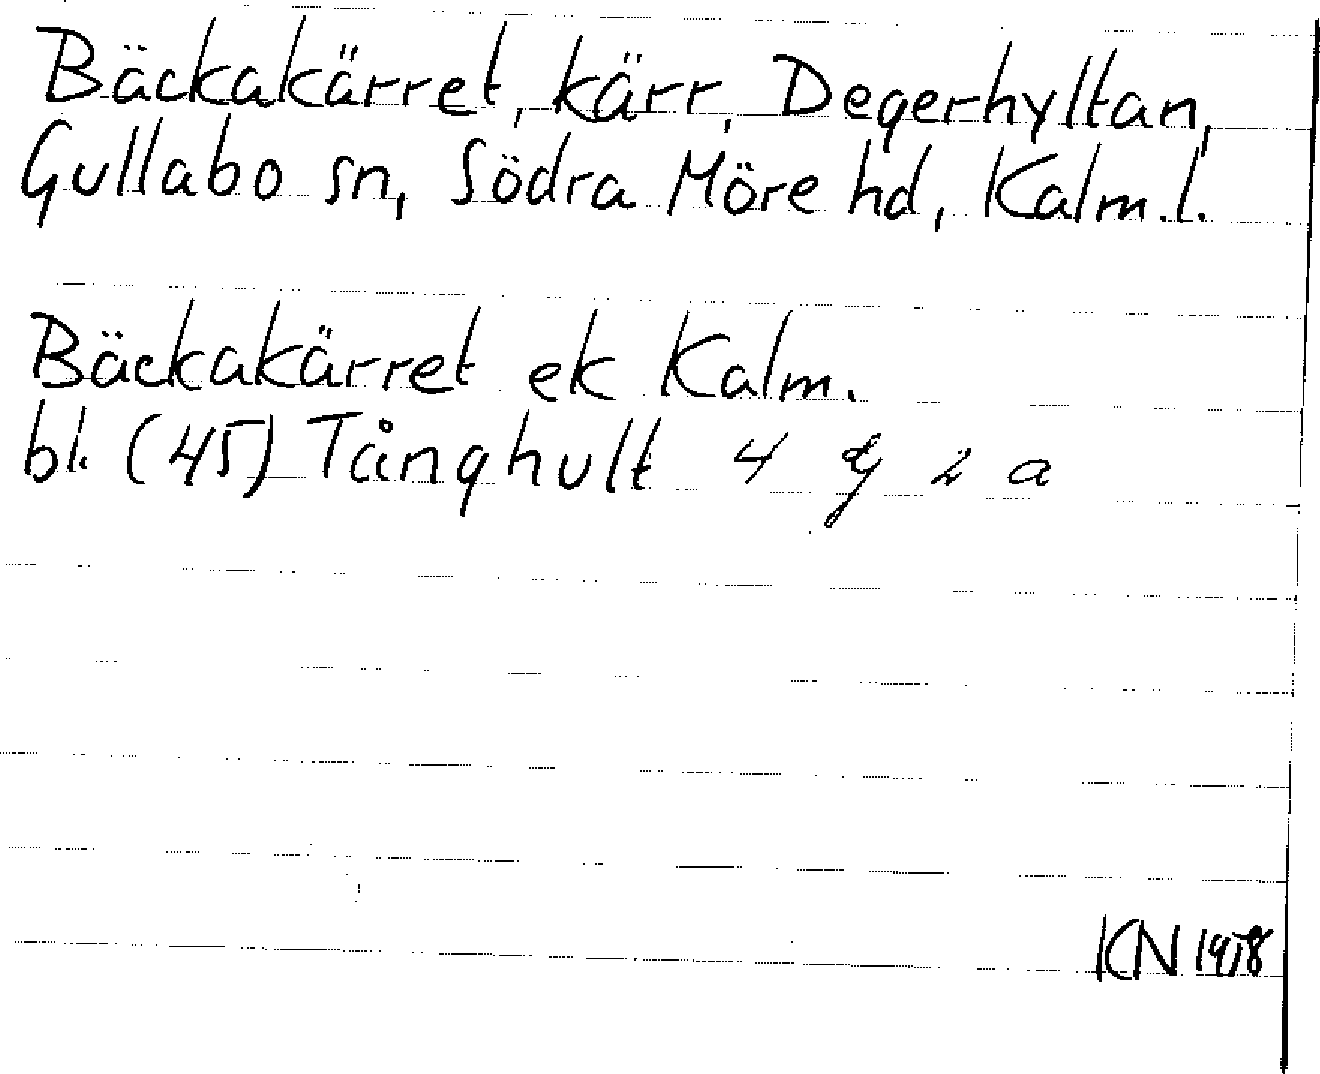 Bäckakärret, kärr, Degerhyltan,
Gullabo sn, Södra Möre hd, Kalm. l.
Bäckakärret ek Kalm.
bl. (45) Tånghult 4 g 2 a
KN 1978